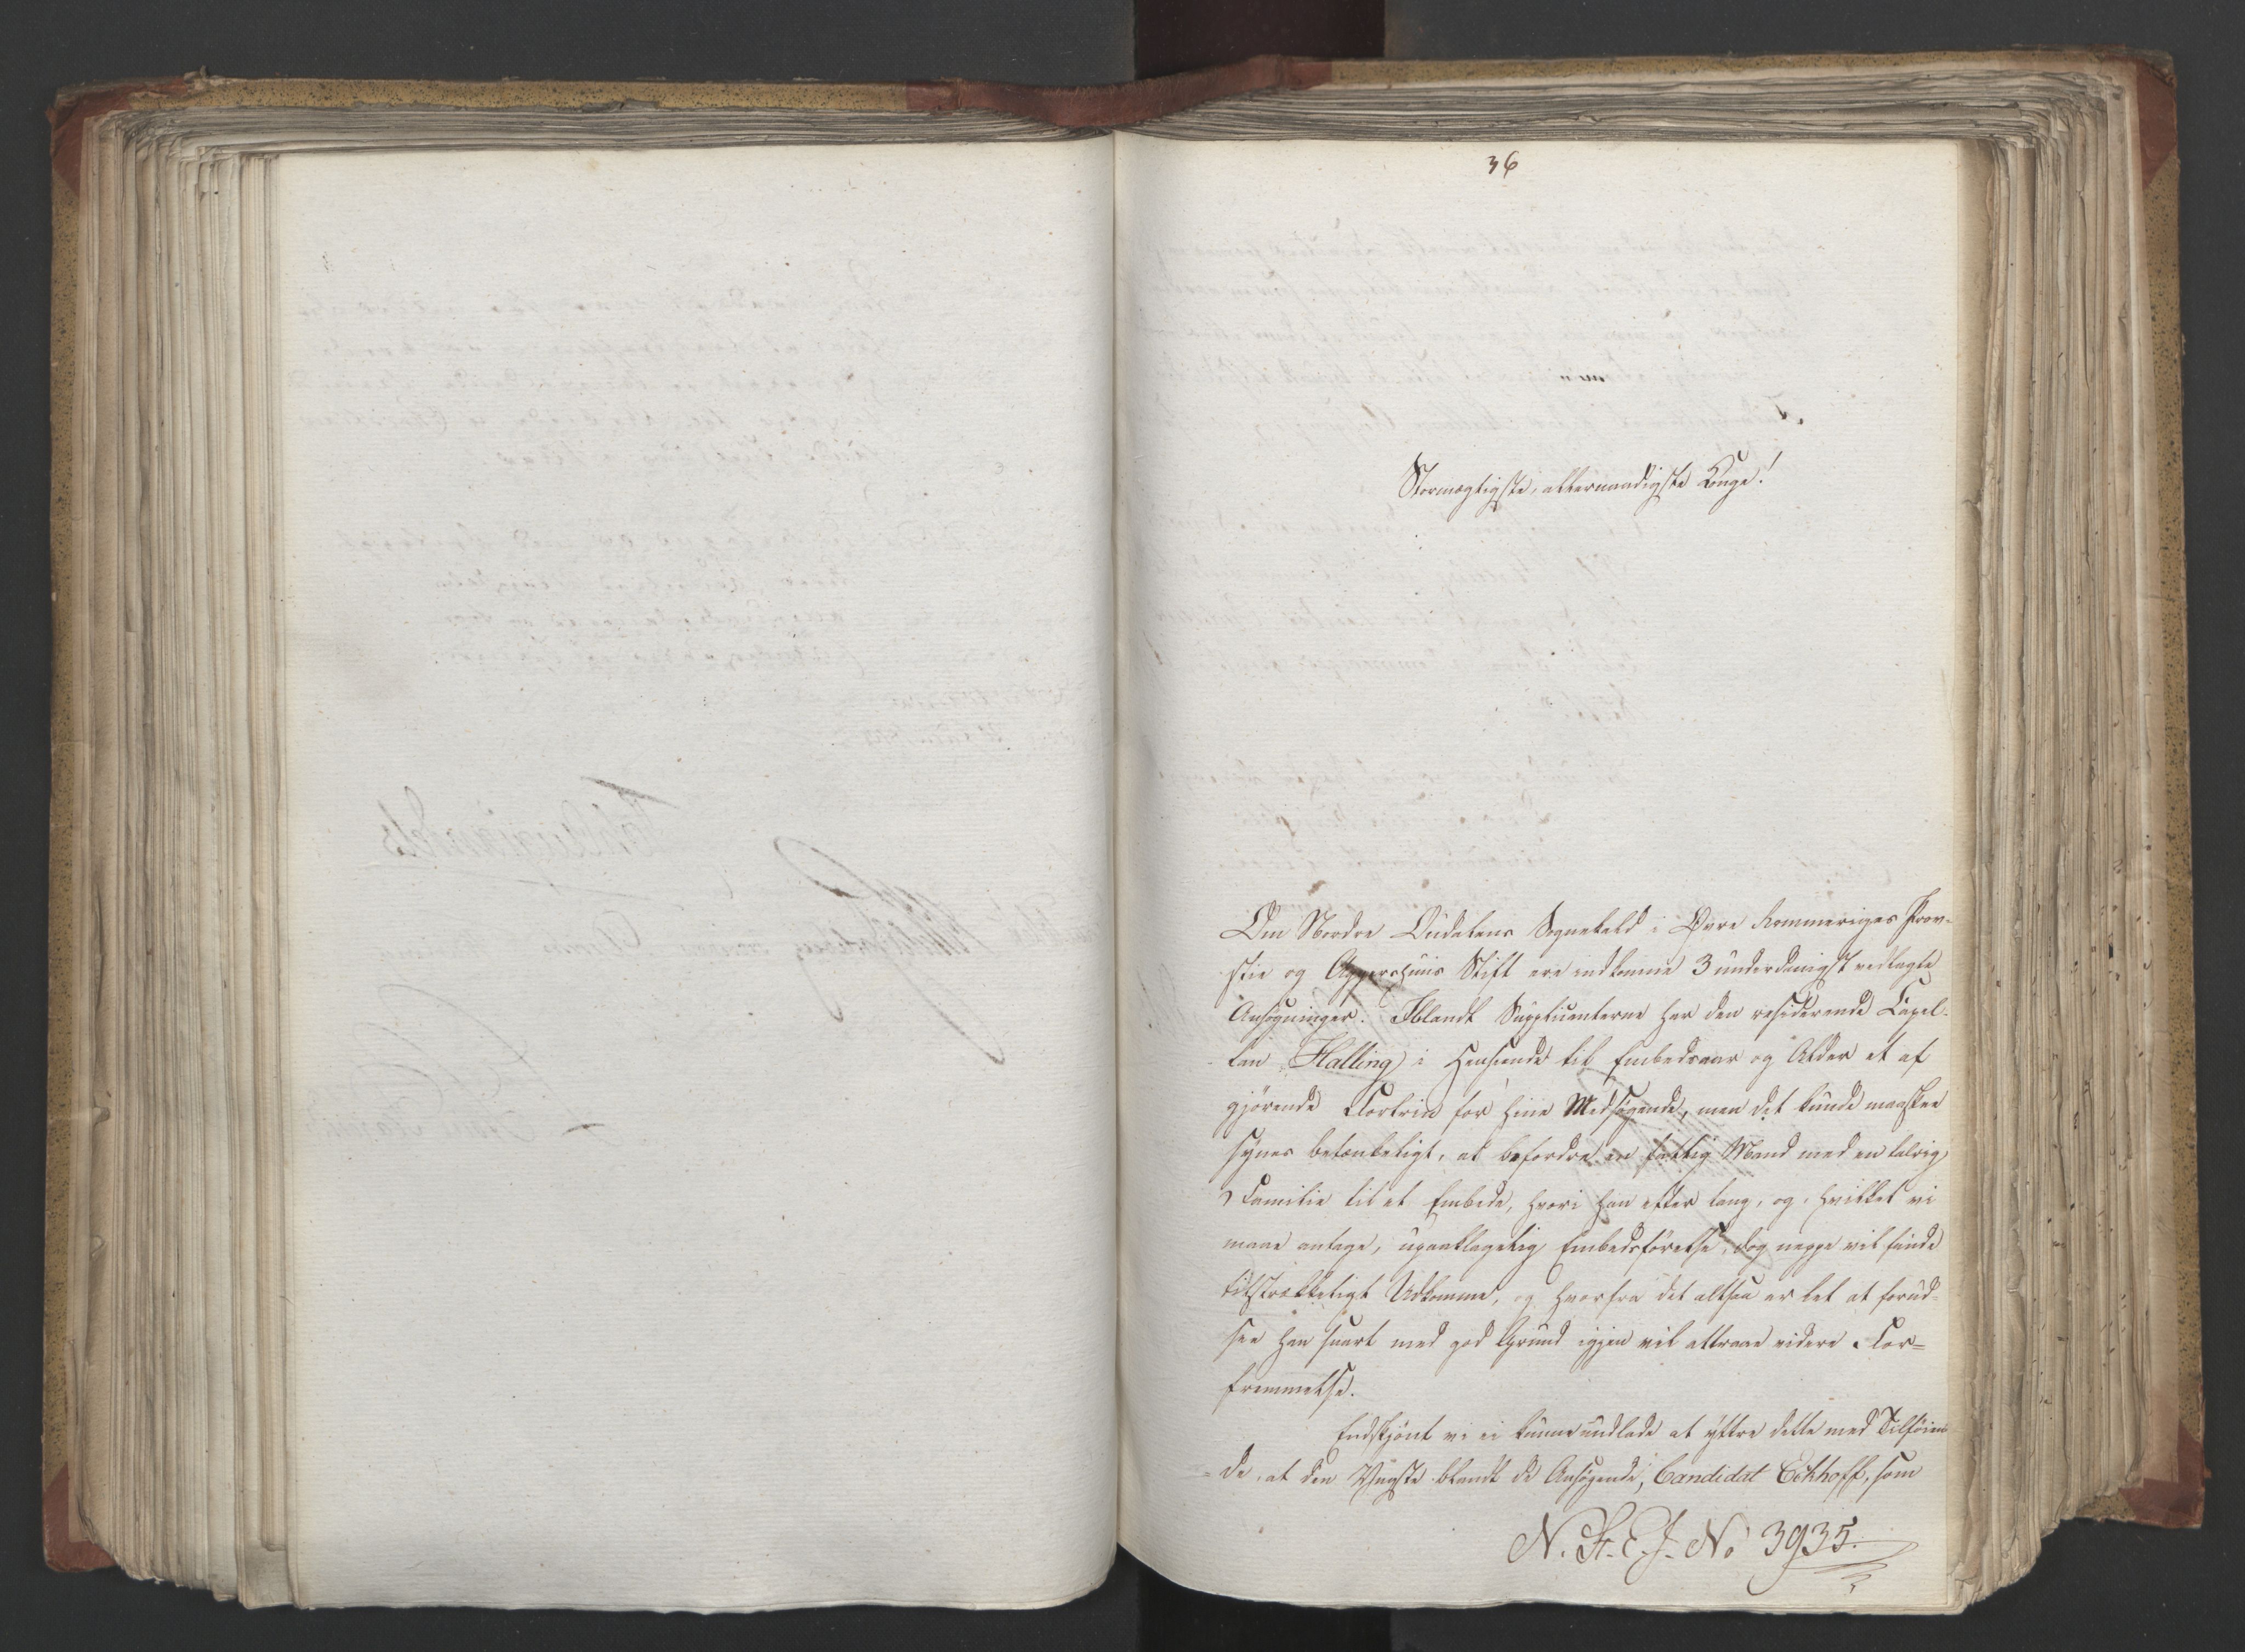 36
Stormægtigste, allernaadigste Konge!
Om Nordre Oudalens Sognekald i Øvre Rommeriges Prov-
stie og Aggershuus Stift ere indkomne 3 underdanigst vedlagte
Ansøgninger. Iblandt Supplicanterne har den residerende Capel-
lan Halling i Henseende til Embedsaar og Alder et af
gjørende Fortrin for hine Medsøgende, men det kunde maaskee
synes betænkeligt, at befordre en fattig Mand med en talrig
Familie til et Embede, hvori han efter lang, og, hvilket vi
maae antage, upaaklagelig Embedsførelse, dog neppe vil finde
tilstrækkeligt Udkomme, og hvorfra det altsaa er let at forud-
see han snart med god Grund igjen vil attraae videre For=
fremmelse.
Endskjønt vi ei kunne undlade at yttre dette med Tilføien
= de, at den Yngste blandt de Ansøgende, Candidat Eckhoff, som
N. St. E. J. No 3935.